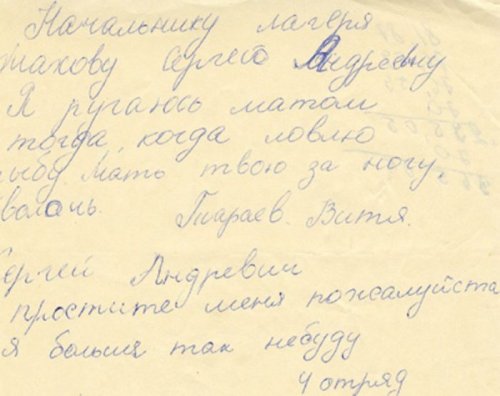 Начальнику лагеря
ахову Сергею Андреевну
Я ругаюсь матом
тогда, когда ловлю
ыбу. Мать твою за ногу,
волочь. Тараев. Витя.
Сергей Андревич
простите меня пожалуйста
я больше так небуду
4 отряд